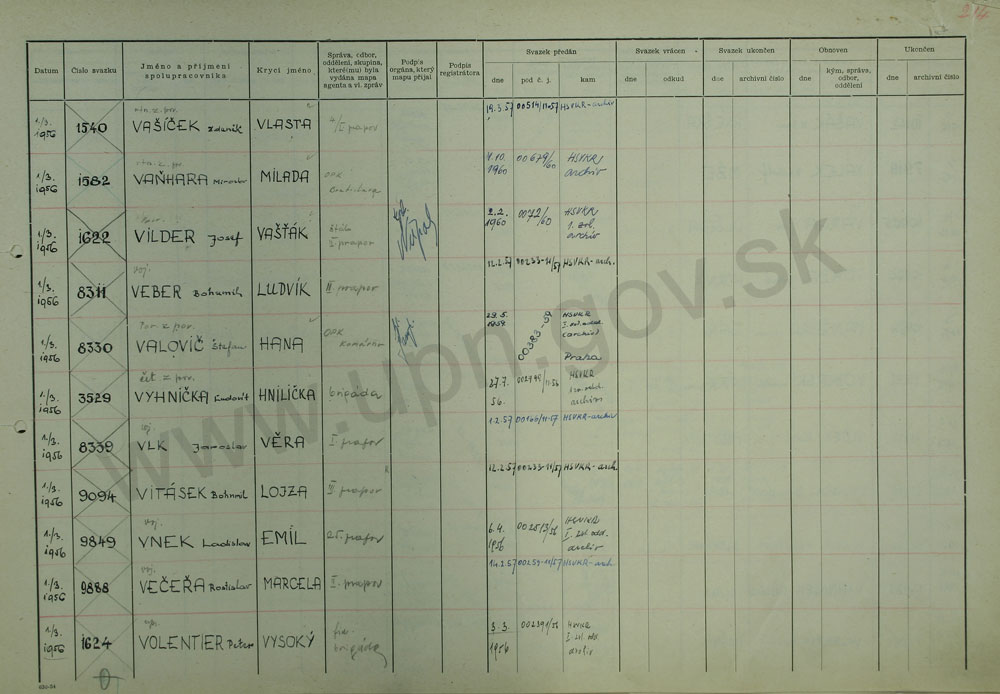 214
Datum
Číslo svazku
Jméno a příjmení
spolupracovníka
Krycí jméno
Správa, odbor,
oddělení, skupina,
které(mu) byla
vydána mapa
agenta a vl. zpráv
Podpis
orgána, který
mapu přijal
Podpis
registrátora
Svazek předán
dne
pod č. j.
kam
Svazek vrácen
dne
odkud
Svazek ukončen
dne
archivní číslo
Obnoven
dne
kým, správa,
odbor,
oddělení
Ukončen
dne
archivní číslo
1/3. 1956 1540 VAŠÍČEK Zdeněk VLASTA 4/I prapor 19.3.57 00514/11-57 HSVKR-archiv
1/3. 1956 1582 VAŇHARA Miroslav MILADA Bratislava 4.10. 1960 00679/60 HSVKR archiv
1/3. 1956 1622 VILDER Josef VAŠŤÁK prapor 2.2. 1960 0072/60 HSVKR 1. zvl. archiv
voj.
1/3. 1956 8311 VEBER Bohumil LUDVÍK II prapor 12.2.57 00233-11/57 HSVKR-arch.
1/3. 1956 8330 VALOVIČ Štefan HANA OPK Komárno 29.5. 1959 00383-59 HSVKR (archiv) Praha
čet z por.
1/3. 1956 3529 VYHNIČKA Ludovít HNILIČKA brigáda 27.7. 56. HSVKR archiv
voj
1/3. 1956 8339 VLK Jaroslav VĚRA I prapor 1.2.57 00166/11-57 HSVKR-archiv
1/3. 1956 9094 VITÁSEK Bohumil LOJZA prapor 12.2.57 00233-11/57 HSVKR-arch.
voj.
1/3. 1956 9849 VNEK Ladislav EMIL 25. prapor 6.4. 1956 002513/56 HSVKR I. zvl. odd. archiv
voj.
1/3. 1956 9888 VEČEŘA Rostislav MARCELA I. prapor 14.2.57 00259-11/57 HSVKR-arch
1/3. 1956 1624 VOLENTIER Peter VYSOKÝ brigáda 3.3. 1956 002391/56 HSVKR I. zvl. odd. archiv
www.upn.gov.sk